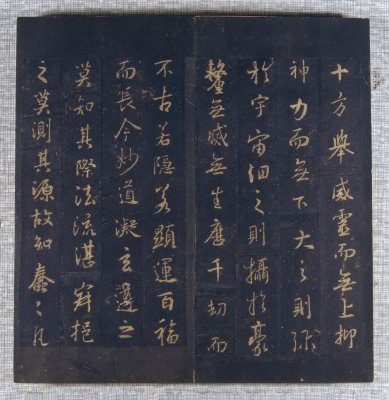 十方舉威靈而無上抑
神力而無下大之則弥
於宇宙細之則攝於豪
釐無滅無生歷千劫而
不古若隱若顯運百福
而長今妙道凝玄遵之
莫知其際法流湛寂挹
之莫測其源故知蠢々凡